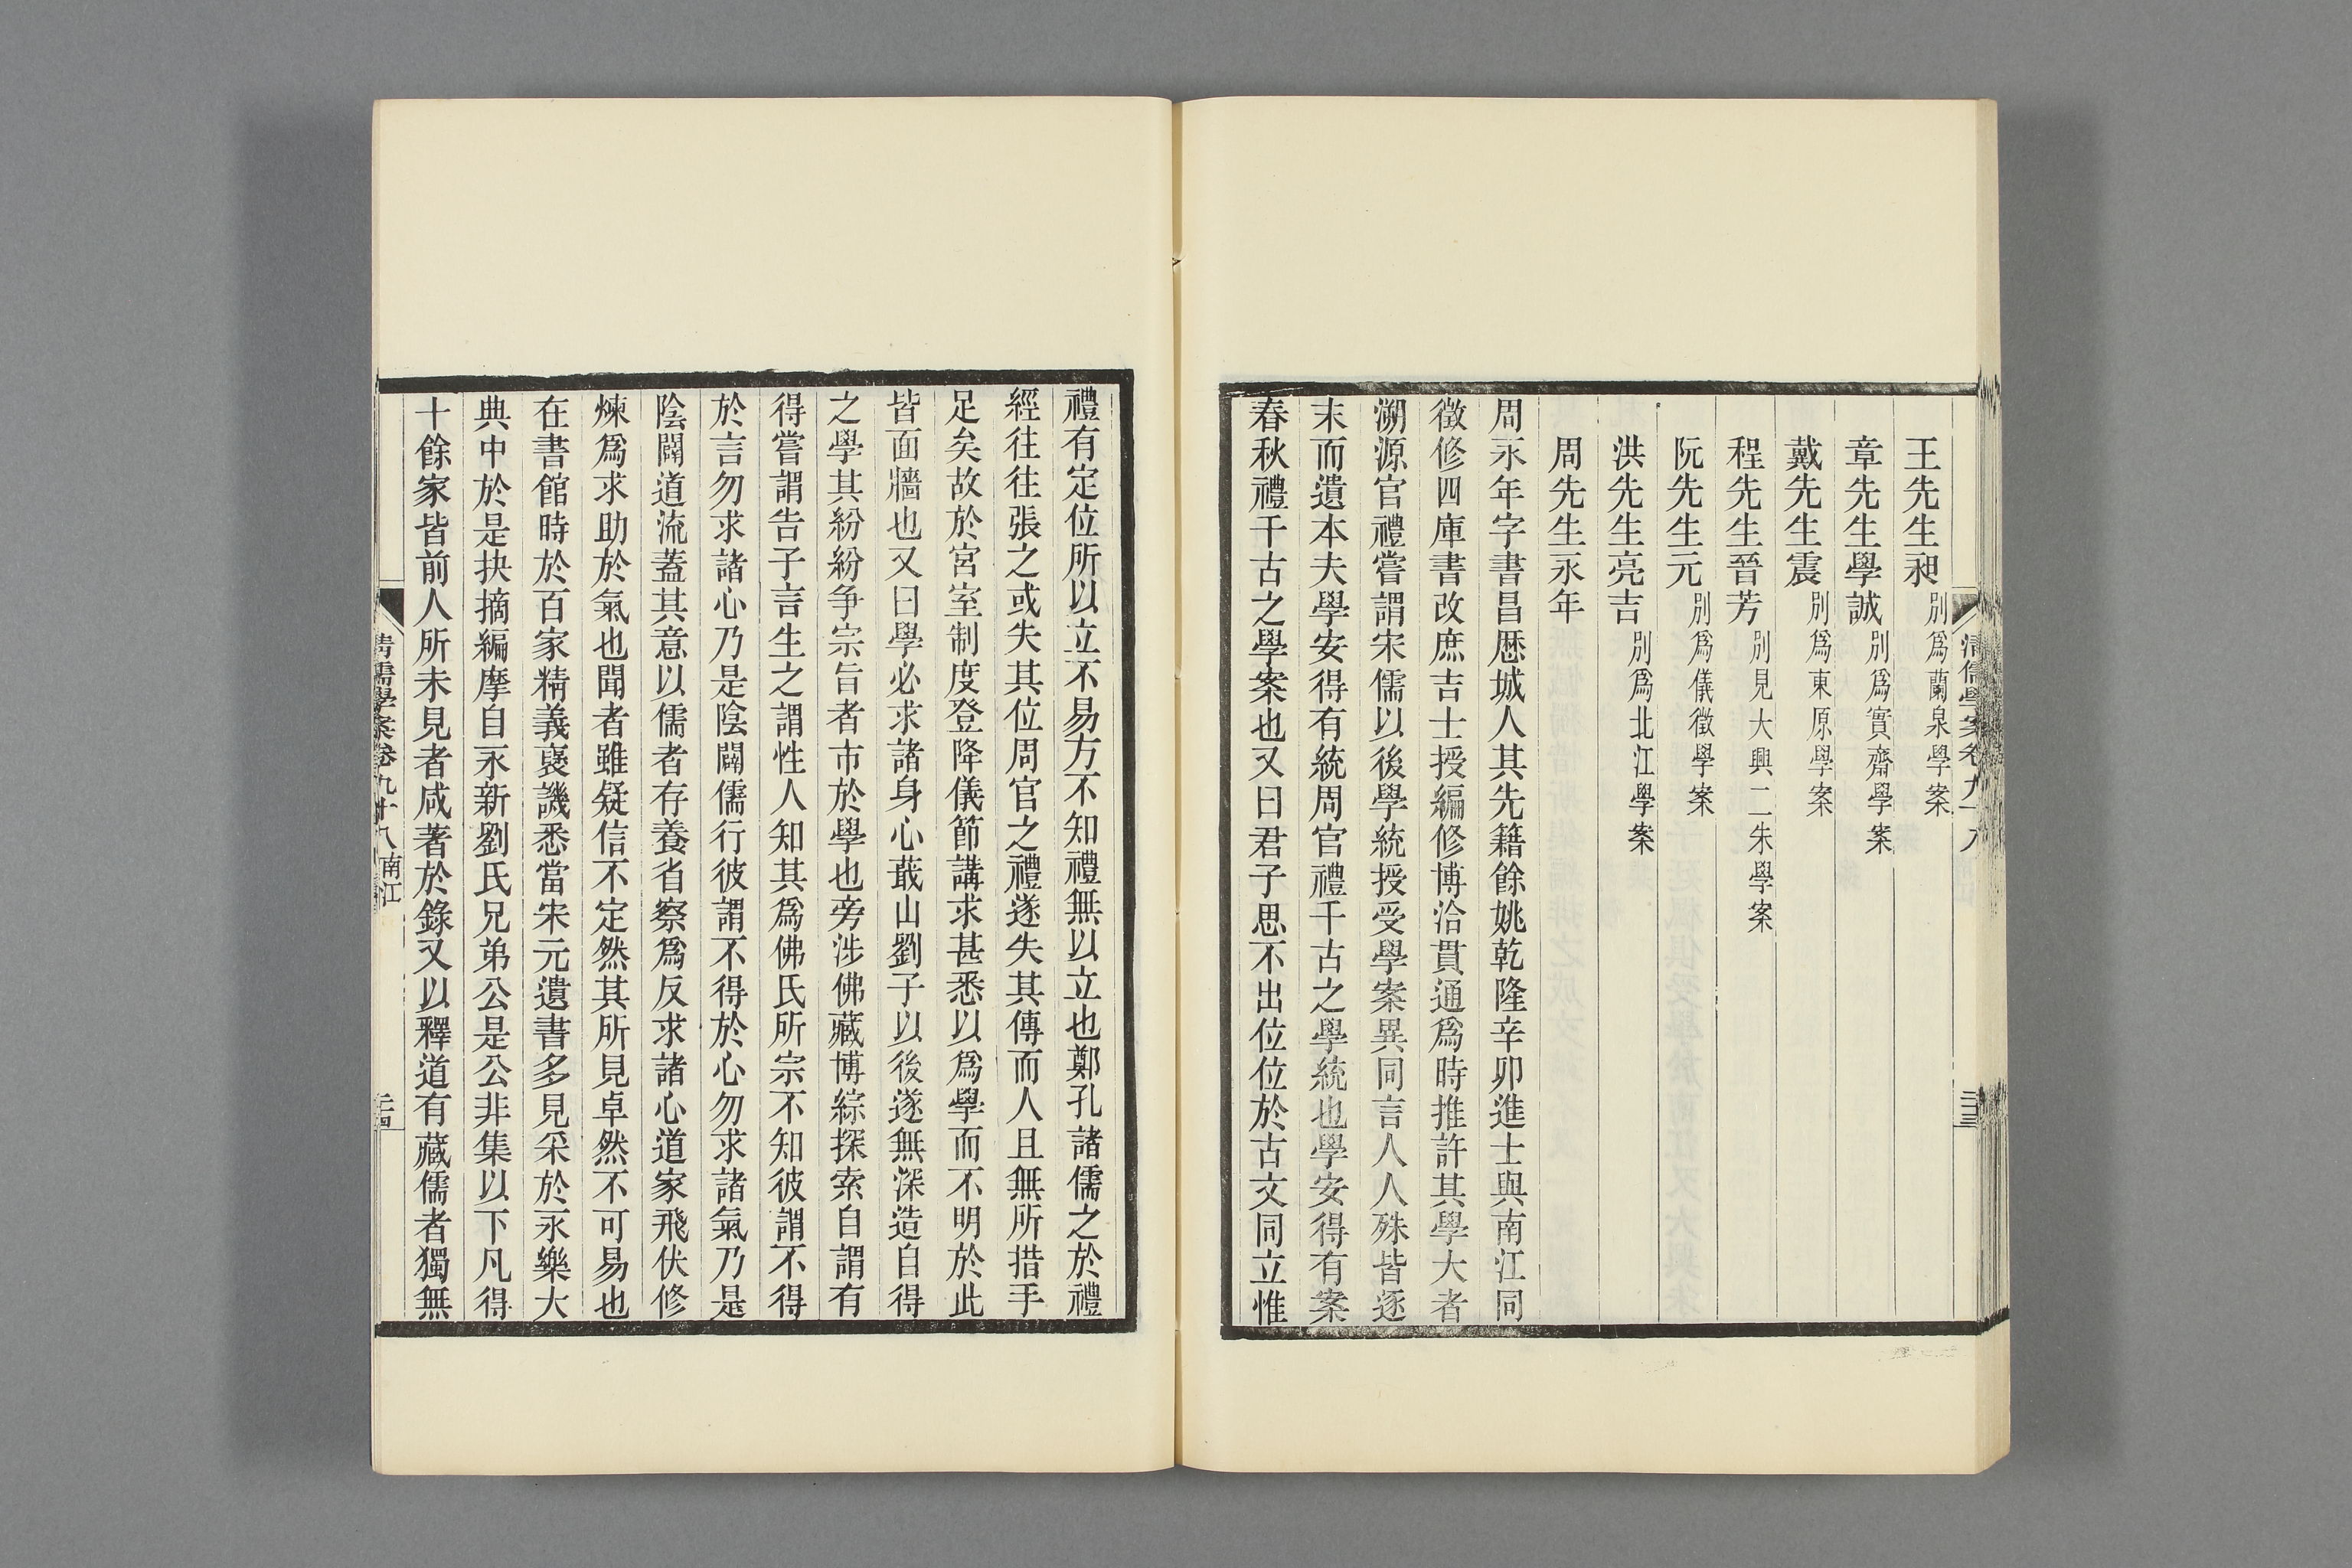 王先生昶別爲蘭泉學案
章先生學誠別爲實齋學案
戴先生震別爲東原學案
程先生晉芳別見大興二朱學案
阮先生元別爲儀徵學案
洪先生亮吉別爲北江學案
周先生永年
周永年字書昌歷城人其先籍餘姚乾隆辛卯進士與南江同
徵修四庫書改庶吉士授編修博洽貫通爲時推許其學大者
溯源官禮嘗謂宋儒以後學統授受學案異同言人人殊皆逐
末而遺本夫學安得有統周官禮千古之學統也學安得有案
春秋禮千古之學案也又曰君子思不出位位於古文同立惟
禮有定位所以立不易方不知禮無以立也鄭孔諸儒之於禮
經往往張之或失其位周官之禮遂失其傳而人且無所措手
足矣故於宮室制度登降儀節講求甚悉以爲學而不明於此
皆面牆也又曰學必求諸身心蕺山劉子以後遂無深造自得
之學其紛紛争宗旨者市於學也旁涉佛藏博綜探索自謂有
得嘗謂告子言生之謂性人知其爲佛氏所宗不知彼謂不得
於言勿求諸心乃是陰闢儒行彼謂不得於心勿求諸氣乃是
陰闢道流蓋其意以儒者存養省察爲反求諸心道家飛伏修
煉爲求助於氣也聞者雖疑信不定然其所見卓然不可易也
在書館時於百家精義裒譏悉當宋元遺書多見采於永樂大
典中於是抉摘編摩自永新劉氏兄弟公是公非集以下凡得
十餘家皆前人所未見者咸著於錄又以釋道有藏儒者獨無
清儒學案卷九十八 南江